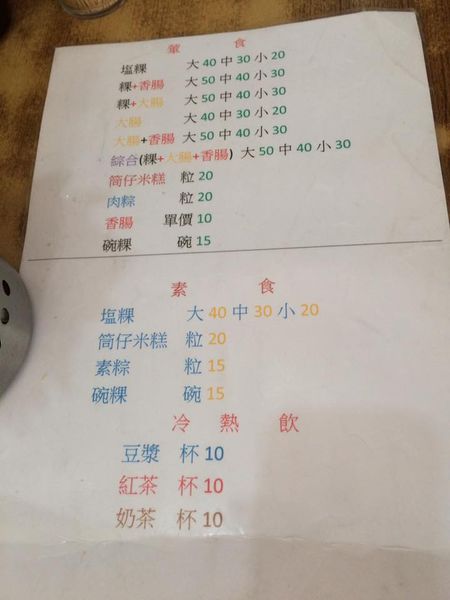 葷 食
塩粿 大 40 中 30 小 20
粿+香腸 大 50 中 40 小 30
粿+大腸 大 50 中 40 小 30
大腸 大 40 中 30 小 20
大腸+香腸 大 50 中 40 小 30
綜合(粿+大腸+香腸) 大 50 中 40 小 30
筒仔米糕 粒 20
肉粽 粒 20
香腸 單價 10
碗粿 碗 15
素 食
塩粿 大 40 中 30 小 20
筒仔米糕 粒 20
素粽 粒 15
碗粿 碗 15
冷 熱 飲
豆漿 杯 10
紅茶 杯 10
奶茶 杯 10